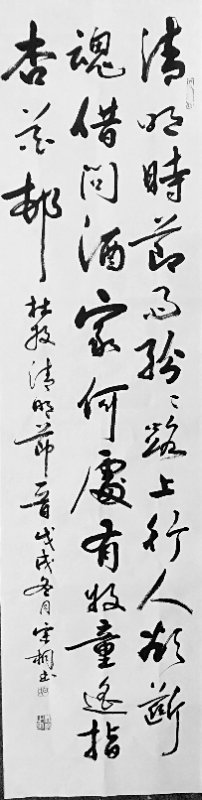 清明時節雨紛〻路上行人欲斷
魂借问酒家何處有牧童遙指
杏花邨
杜牧清明節戊戌冬月书